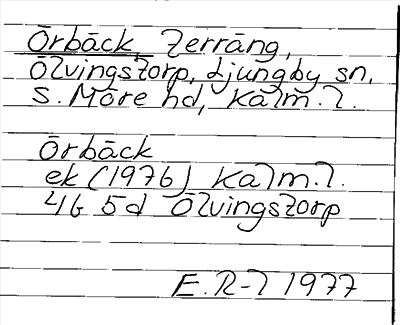 Örbäck, Terräng,
Ölvingstorp, Ljungby sn,
S. Möre hd, Kalm. l.
Örbäck
ek (1976) Kalm. l.
4G 5d Ölvingstorp
E. R-l 1977